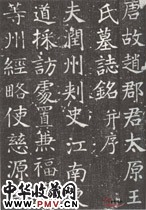 唐故趙郡君太原王
氏墓誌銘并序
夫潤州刺史江南東
道採訪處置兼福
等州經略使慈源
中华收藏网
www.PMV.cn